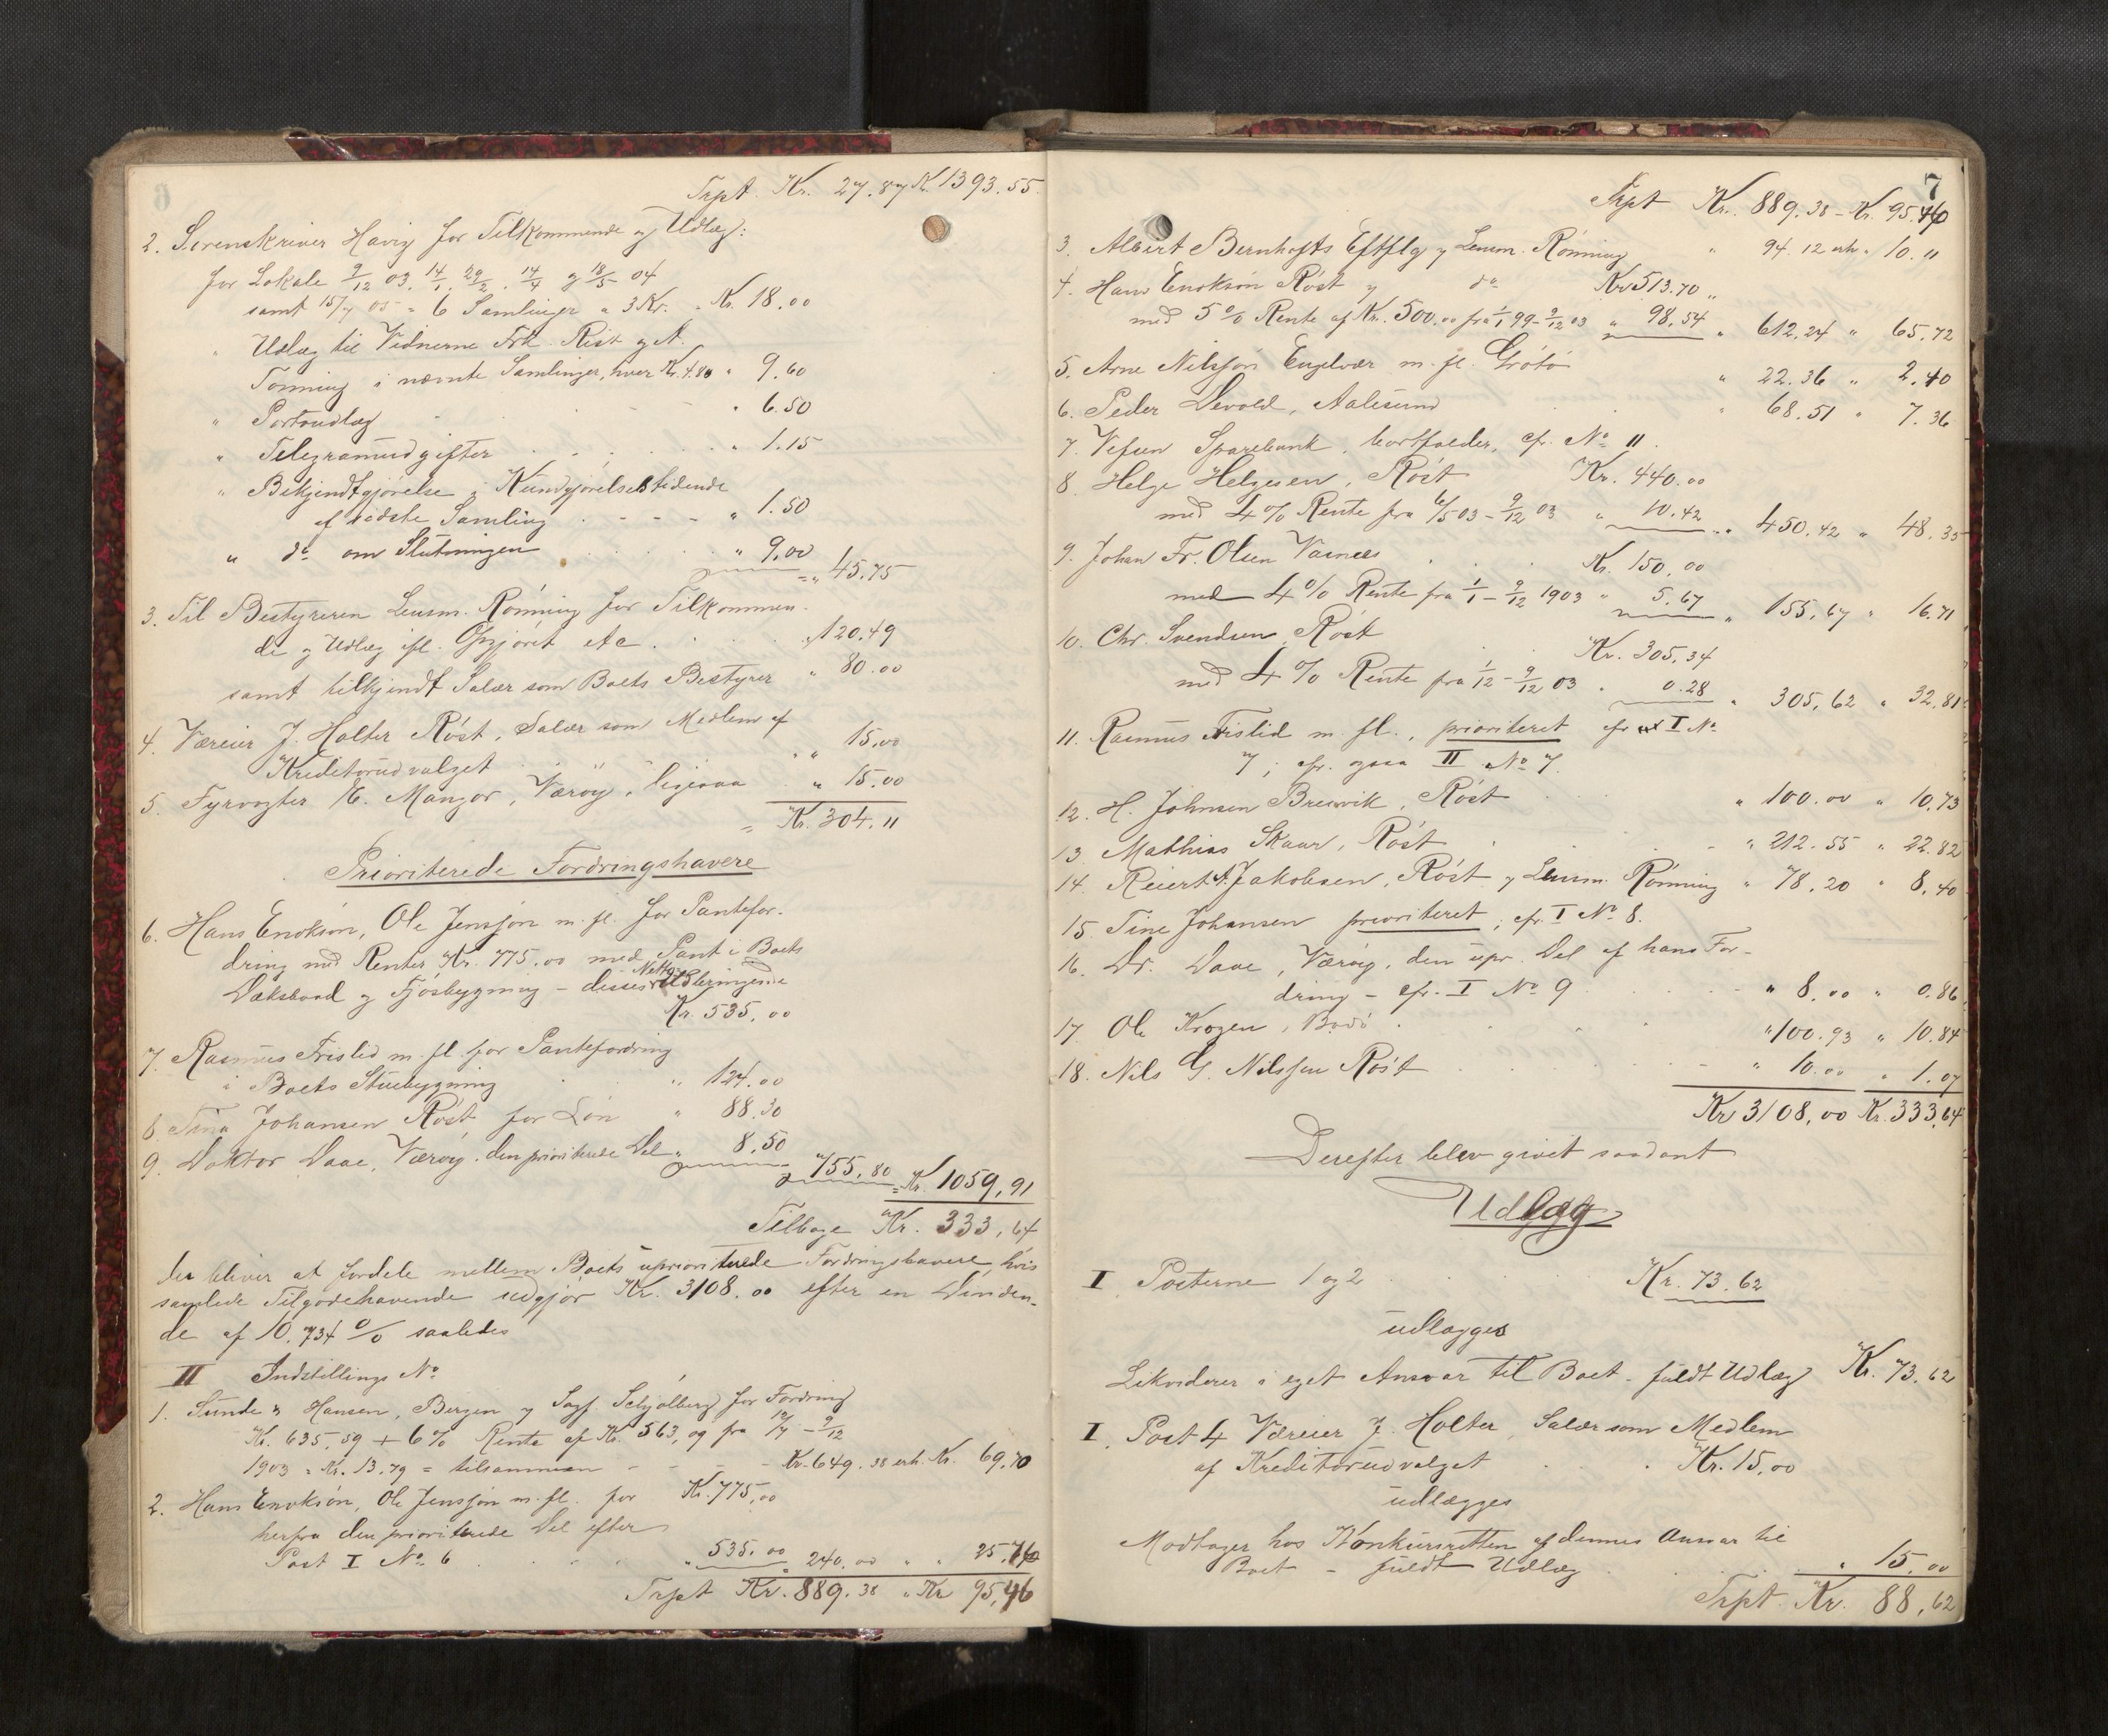 Trpt. Kr. 27.87 Kr. 1393.55
2. Sorenskriver Havig for Tilkommende og Udlæg:
for Lokale 9/12 03, 14/1, 29/2, 14/4 og 18/5 04
samt 15/7 05 = 6 Samlinger a 3 Kr. - Kr. 18.00
" Udlæg til Vidnerne Frk. Rist og A.
Tønning i nævnte Samlinger, hver Kr. 4.80 " 9.60
" Portoudlæg - - - " 6.50
" Telegramudgifter " 1.15
" Bekjendtgjørelse i Kundgjørelsestidende
af sidste Samling - - - " 1.50
" do om Slutningen " 9.00 = " 45.75
3. Til Bestyreren Lensm. Rönning for Tilkommen-
de og Udlæg ifl. Opgjörit etc. " 120.49
samt tilkjendt Salær som Boets Bestyrer " 80.00
4. Væreier J. Holter Röst, Salær som Medlem af
Kreditorudvalget " " 15.00
5. Fyrvogter E. Mangor, Væröy, ligesaa " 15.00
= Kr. 304.11
Prioriterede Fordringshavere
6. Hans Enokson, Ole Jensson m. fl. for Pantefor-
dring med Renter Kr. 775.00 med Pant i Boets
Dæksbaad og Fjösbygning - disses Netto
Kr. 535.00
7. Rasmus Frislid m. fl. for Pantefordring
i Boets Stuebygning " 124.00
8. Tina Johansen Röst for Lön " 88.30
9. Doktor Daae, Væröy, den prioriterede Del " 8.50
755.80 = Kr. 1059.91
Tilbage Kr. 333.64
der bliver at fordele mellem Boets uprioriterede Fordringshavere, hvis
samlede Tilgodehavende udgjör Kr. 3108.00 efter en Dividen-
de af 10.734 % saaledes
II Indstillings No
1. Sunde & Hansen, Bergen og Sagf. Schjölberg for Fordring
Kr. 635.59 + 6% Rente af Kr. 563, og fra 12/7 - 9/12
1903 = Kr. 13.79 = tilsammen - - - Kr. 649.38 erh. Kr. 69.70
2. Hans Enoksön, Ole Jenssön m. fl. for Kr. 775.00
herfra den prioriterede Del efter
Post I No 6 " 535.00 240.00 " " 25.76
Trpt Kr. 889.38 " Kr 95,46
7
Trpt Kr. 889.38 - Kr. 95.46
3. Albert Bernhofts Eftflg og Lensm. Rönning " 94.12 erh. " 10.11
4. Hans Enoksön Röst og do Kr 513.70
med 5% Rente af Kr. 500.00 fra 1/1 99 - 9/12 03 " 98.54 " 612.24 " 65.72
5. Arne Nilssön Engelvær m. fl. Grötö " 22.36 " 2.40
6. Peder Devold, Aalesund " 68.51 " 7.36
7. Vefsen Sparebank, bortfalder, cfr. No 11.
8. Helge Helgesen, Röst Kr. 440.00
med 4% Rente fra 6/5 03 - 9/12 03 " 10.42 " 450.42 " 48.35
9. Johan Fr. Olsen Kr. 150.00
med 4% Rente fra 1/1 - 9/12 1903 " 5.67 " 155.67 " 16.71
10. Chr. Svendsen, Röst Kr. 305.34
med 4% Rente fra 1/12 - 9/12 03 " 0.28 " 305.62 " 32.81
11. Rasmus Frislid m. fl., prioriteret cfr I No
7, cfr. ogsaa II No 7.
12. H. Johnsen Breivik, Röst " 100.00 " 10.73
13. Mathias Skaar, Röst " 212.55 " 22.82
14. Reiert A. Jakobsen, Röst og Lensm. Rönning " 78.20 " 8.40
15 Tine Johansen prioriteret, cfr. I No 8.
16. Dr. Daae, Væröy, den upr. Del af hans For-
dring - cfr. I No 9 " 8.00 " 0.86
17 Ole Krogen, Bodö " 100.93 " 10.84
18. Nils G. Nilssen Röst " 10.00 " 1.07
Kr 3108.00 Kr. 333.64
Derefter blev givet saadant
Udlæg
I Posterne 1 og 2 Kr. 73.62
udlægges
Likviderer i eget Ansvar til Boet - fuldt Udlæg Kr. 73.62
I. Post 4 Væreier J. Holter, Salær som Medlem
af Kreditorudvalget Kr. 15.00
udlægges
Modtager hos Konkursretten af dennes Ansvar til
Boet - fuldt Udlæg " 15.00
Trpt. Kr. 88.62